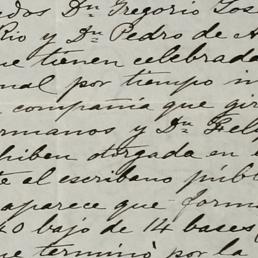 dos Dn Gregorio Sos
Rio y Dn Pedro de A
ue tienen celebrada
nal por tiempo in
compañia que gir
rmanos y Dn Feli
hiben otorgada en
te al escribano públ
aparece que forma
40 bajo de 14 bases
ue terminó por la